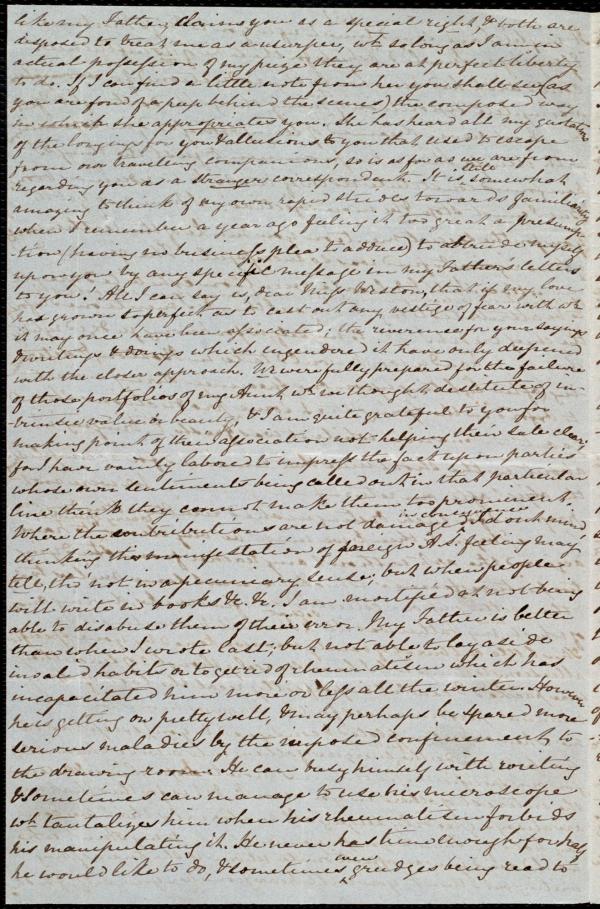 like my Father, claims you as a special right, & both are
disposed to treat me as a usurper, wh so long as I am in
actual possession of my prize they are at perfect liberty
to do. If I can find a little note from her you shall see (as
you are fond of a peep behind the scenes) the composed way
in which she appropriates you. She has heard all my quotations
of the longings for you & allusions to you that used to escape
from our traveling companions, so is as far as we are from
regarding you as a stranger correspondent. It is still somewhat
amazing to think of my own rapid strides towards familiarity
when I remember a year ago feeling it too great a presump-
tion (having no business plea to adduce) to obtrude myself
upon you by any specific message in my Father's letters
to you! All I can say is, dear Miss Weston, that if my love
has grown so perfect as to cast out any vestige of fear with wh
it may once have been associated; the reverence for your sayings
& writings & doings which engendered it have only deepened
with the closer approach. We were fully prepared for the failure
of those portfolios of my Aunt, wh we thought destitute of in-
-trinsic value or beauty, & I am quite grateful to you for
making point of their association not helping their sale clear,
for I have vainly labored to impress the fact upon parties
whose own sentiments being called out in that particular
line think they cannot make them too prominent.
Where the contributions are not damaged in consequence I do not mind
thinking this manifestation of foreign A.S. feeling may
tell, tho not in a pecuniary sense; but when people
will write in books &c. &c. I am mortified at not being
able to disabuse them of their error. My Father is better
than when I wrote last; but not able to lay aside
invalid habits or to get rid of rheumatism which has
incapacitated him more or less all the winter. However
he is getting on pretty well, & may perhaps be spared more
serious maladies by the imposed confinement to
the drawing room. He can busy himself with writing
& sometimes can manage to use his microscope
wh tantalizes him when his rheumatism forbids
his manipulating it. He never has time enough for half
he would like to do, & sometimes even grudges being read to